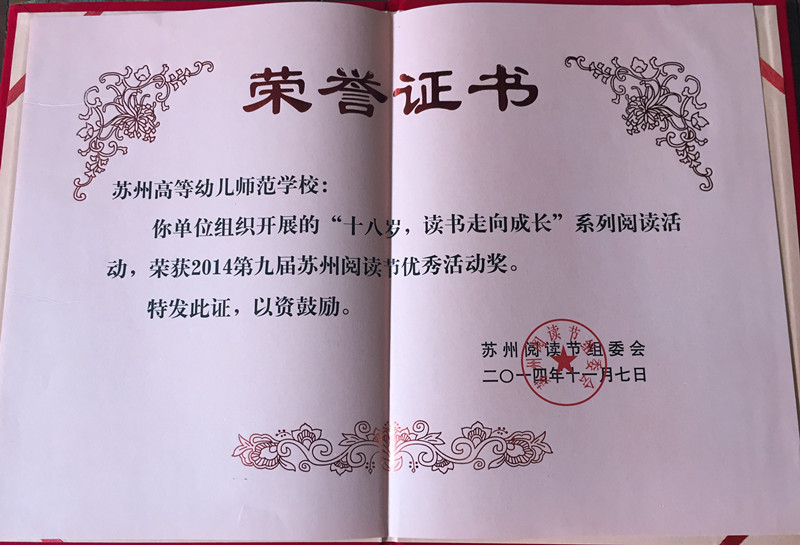 荣誉证书
苏州高等幼儿师范学校：
你单位组织开展的“十八岁，读书走向成长”系列阅读活
动，荣获2014第九届苏州阅读节优秀活动奖。
特发此证，以资鼓励。
苏州阅读节组委会
二〇一四年十一月七日
苏州阅读节组委会